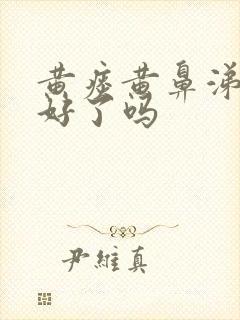 黄痰黄鼻涕
好了吗
尹维真